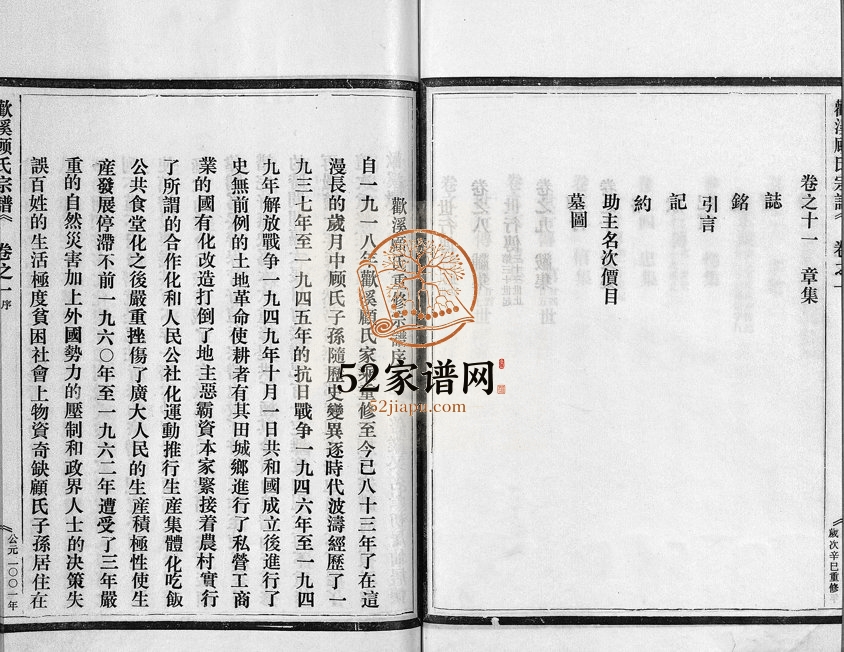 歡溪顧氏宗譜
卷之一
歲次辛巳重修
卷之十一 章集
誌
銘
引言
記
約
助主名次價目
墓圖
歡溪顧氏重修宗譜序
自一九一八年歡溪顧氏家乘重修至今已八十三年了在這
漫長的歲月中顾氏子孫隨歷史變異逐時代波濤經歷了一
九三七年至一九四五年的抗日戰争一九四六年至一九四
九年解放戰争一九四九年十月一日共和國成立後進行了
史無前例的土地革命使耕者有其田城鄉進行了私營工商
業的國有化改造打倒了地主惡霸資本家緊接着農村實行
了所謂的合作化和人民公社化運動推行生産集體化吃飯
公共食堂化之後嚴重挫傷了廣大人民的生産積極性使生
産發展停滯不前一九六〇年至一九六二年遭受了三年嚴
重的自然災害加上外國勢力的壓制和政界人士的决策失
誤百姓的生活極度貧困社會上物資奇缺顧氏子孫居住在
歡溪顾氏宗譜
卷之一 序
公元二〇〇一年
52家谱网
52jiapu.com